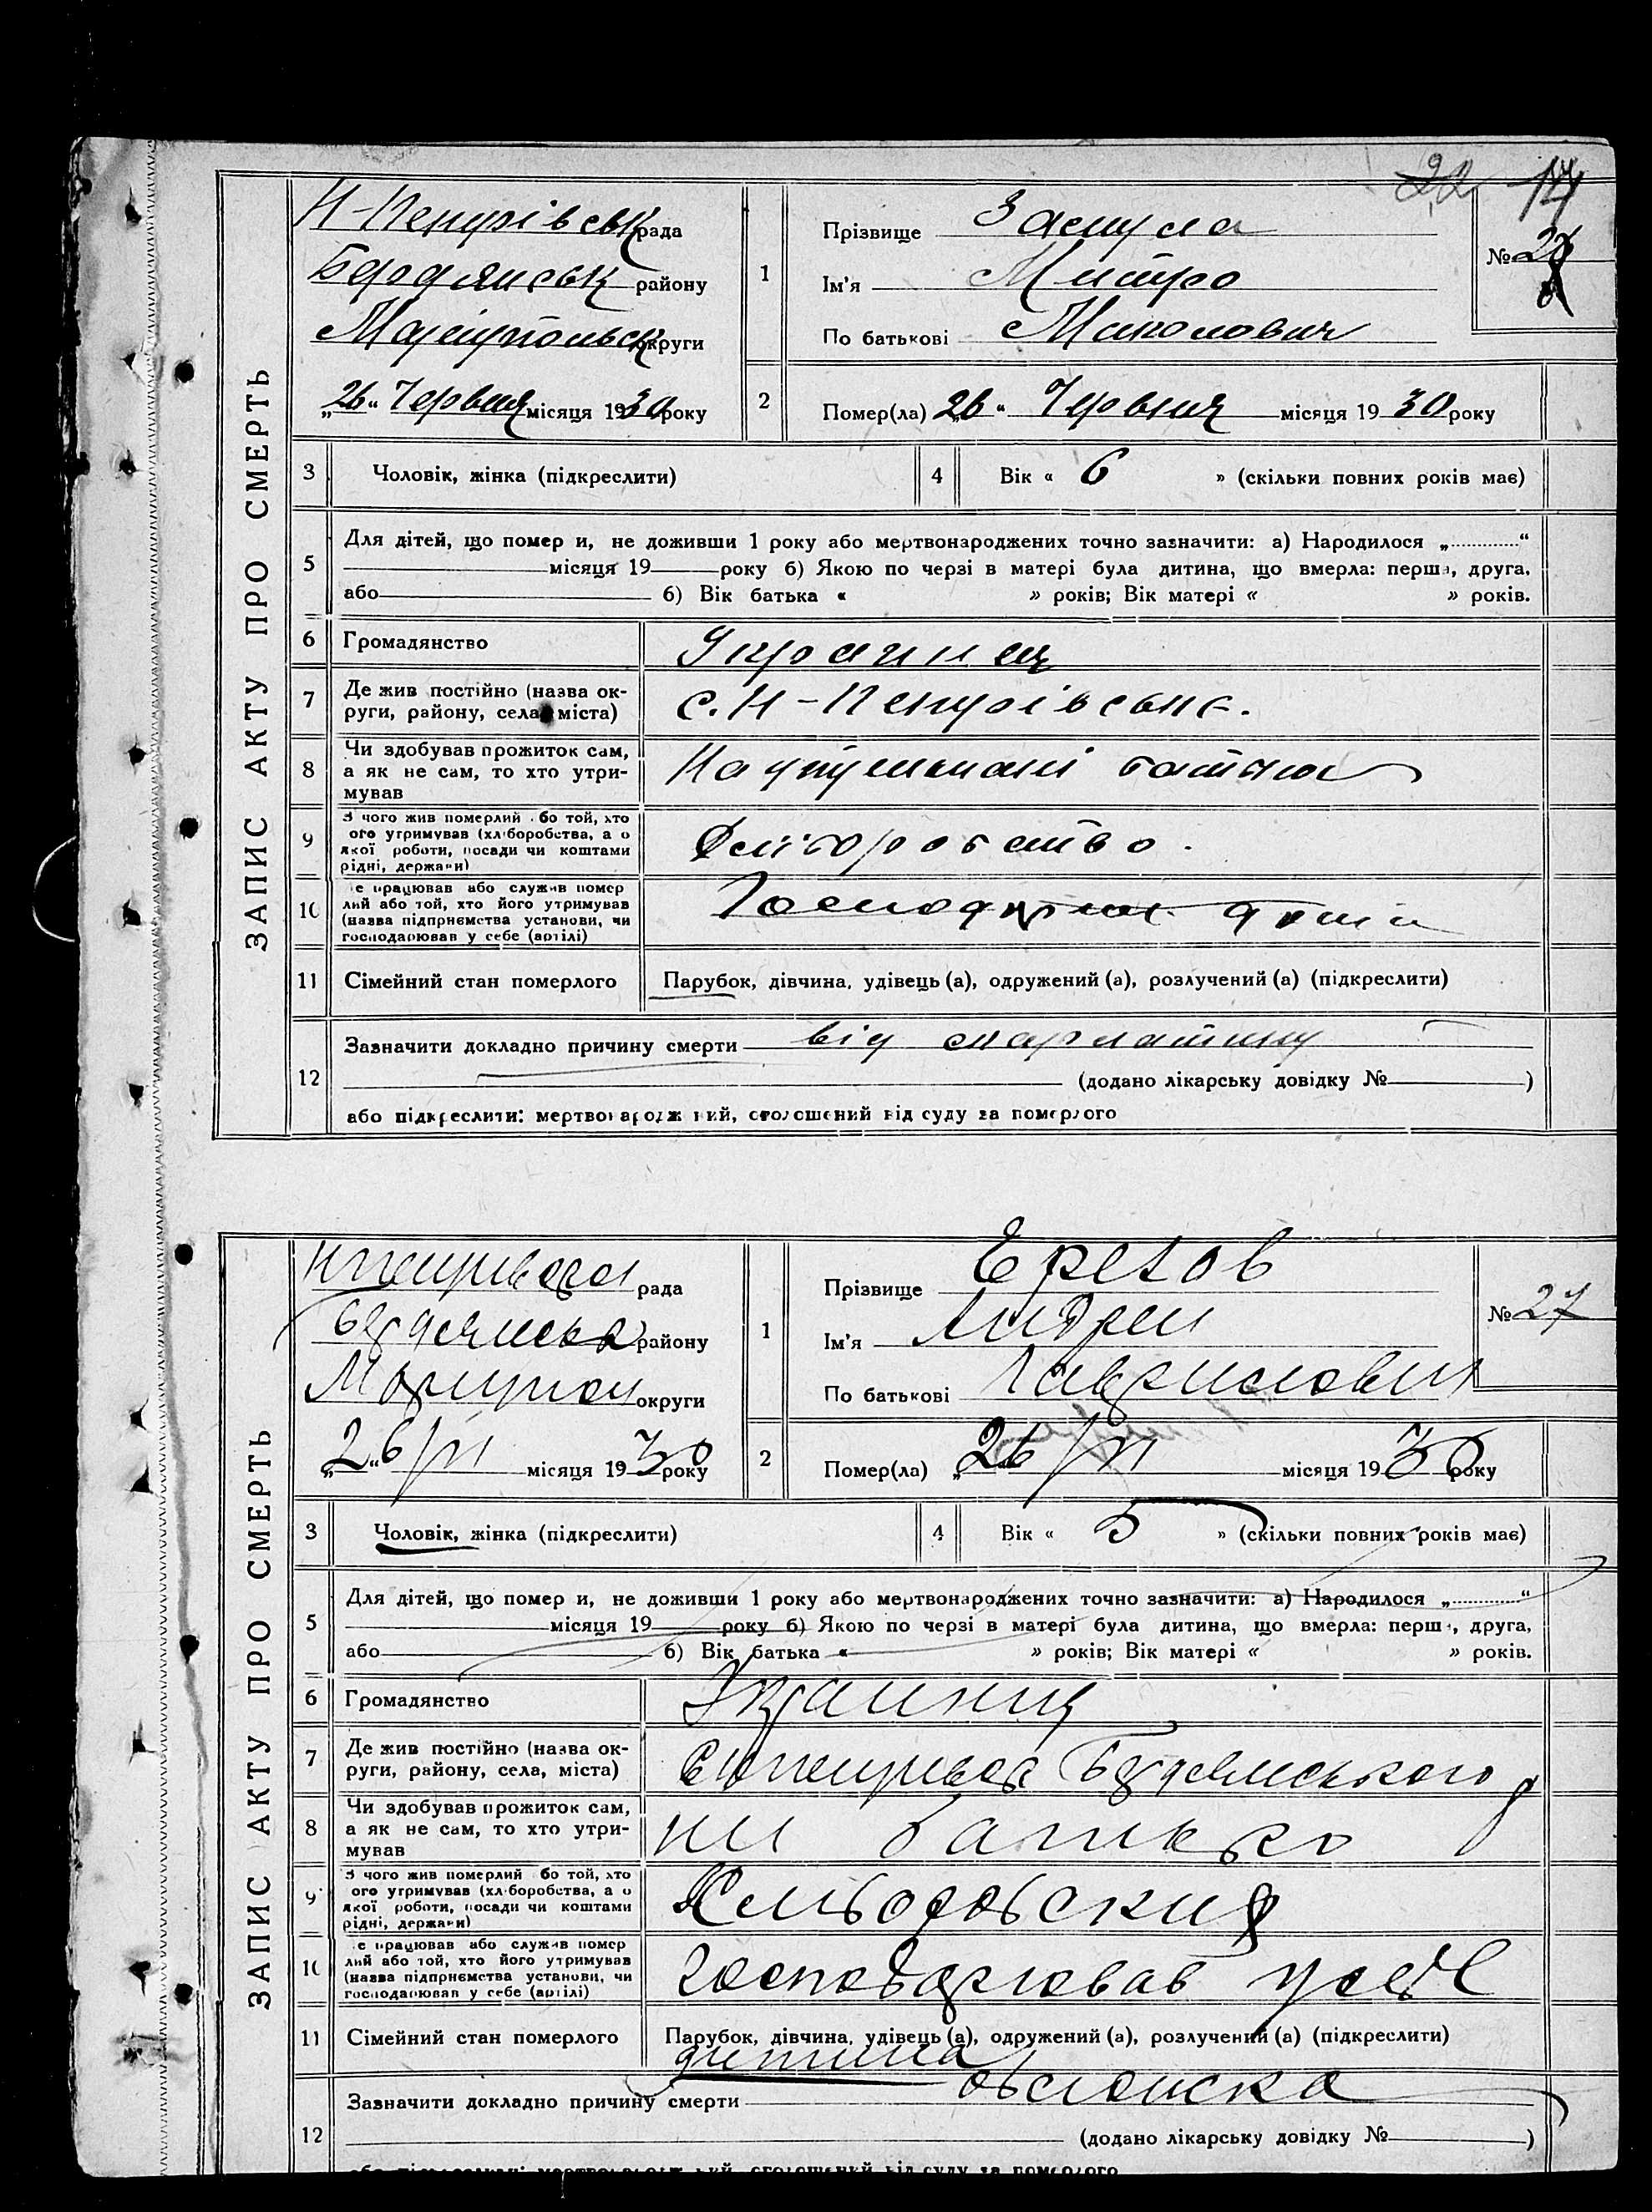 22 14
ЗАПИС АКТУ ПРО СМЕРТЬ
рада
Бердянськ району
Маріупольськ округи
„26“ Червня місяця 1930 року
1
Прізвище
Ім'я Митро
По батькові Миколович
№
2
Помер(ла) „26“ Червня місяця 1930 року
3 Чоловік, жінка (підкреслити)
4 Вік « 6 » (скільки повних років має)
5 Для дітей, що помер и, не доживши 1 року або мертвонароджених точно зазначити: а) Народилося „.............“
місяця 19 року б) Якою по черзі в матері була дитина, що вмерла: перша, друга,
або б) Вік батька « » років; Вік матері « » років.
6 Громадянство Украинец
7 Де жив постійно (назва ок-
руги, району, села, міста)
8 Чи здобував прожиток сам,
а як не сам, то хто утри-
мував
батька
9 З чого жив померлий або той, хто
ого утримував (хліборобства, а о
якої роботи, посади чи коштами
рідні, держави)
10 е працював або служив помер
лий або той, хто його утримував
(назва підприємства установи, чи
господарював у себе (артілі)
дома
11 Сімейний стан померлого Парубок, дівчина, удівець (а), одружений (а), розлучений (а) (підкреслити)
12 Зазначити докладно причину смерти від скарлатину
(додано лікарську довідку № )
або підкреслити: мертвонароджений, оголошений від суду за померлого
ЗАПИС АКТУ ПРО СМЕРТЬ
рада
району
округи
„26“/VI місяця 1930 року
1
Прізвище Ерехов
Ім'я Андрей
По батькові Гаврилович
№ 27
2
Помер(ла) „26“/VI місяця 1930 року
3 Чоловік, жінка (підкреслити)
4 Вік « 5 » (скільки повних років має)
5 Для дітей, що помер и, не доживши 1 року або мертвонароджених точно зазначити: а) Народилося „.............“
місяця 19 року б) Якою по черзі в матері була дитина, що вмерла: перш , друга,
або б) Вік батька « » років; Вік матері « » років.
6 Громадянство Украинец
7 Де жив постійно (назва ок-
руги, району, села, міста)
Бердянського р
8 Чи здобував прожиток сам,
а як не сам, то хто утри-
мував
ни батько
9 З чого жив померлий або той, хто
ого утримував (хліборобства, а о
якої роботи, посади чи коштами
рідні, держави)
10 е працював або служив помер
лий або той, хто його утримував
(назва підприємства установи, чи
господарював у себе (артілі)
господарював у себе
11 Сімейний стан померлого Парубок, дівчина, удівець (а), одружений (а), розлучений (а) (підкреслити)
дитина
12 Зазначити докладно причину смерти
(додано лікарську довідку № )